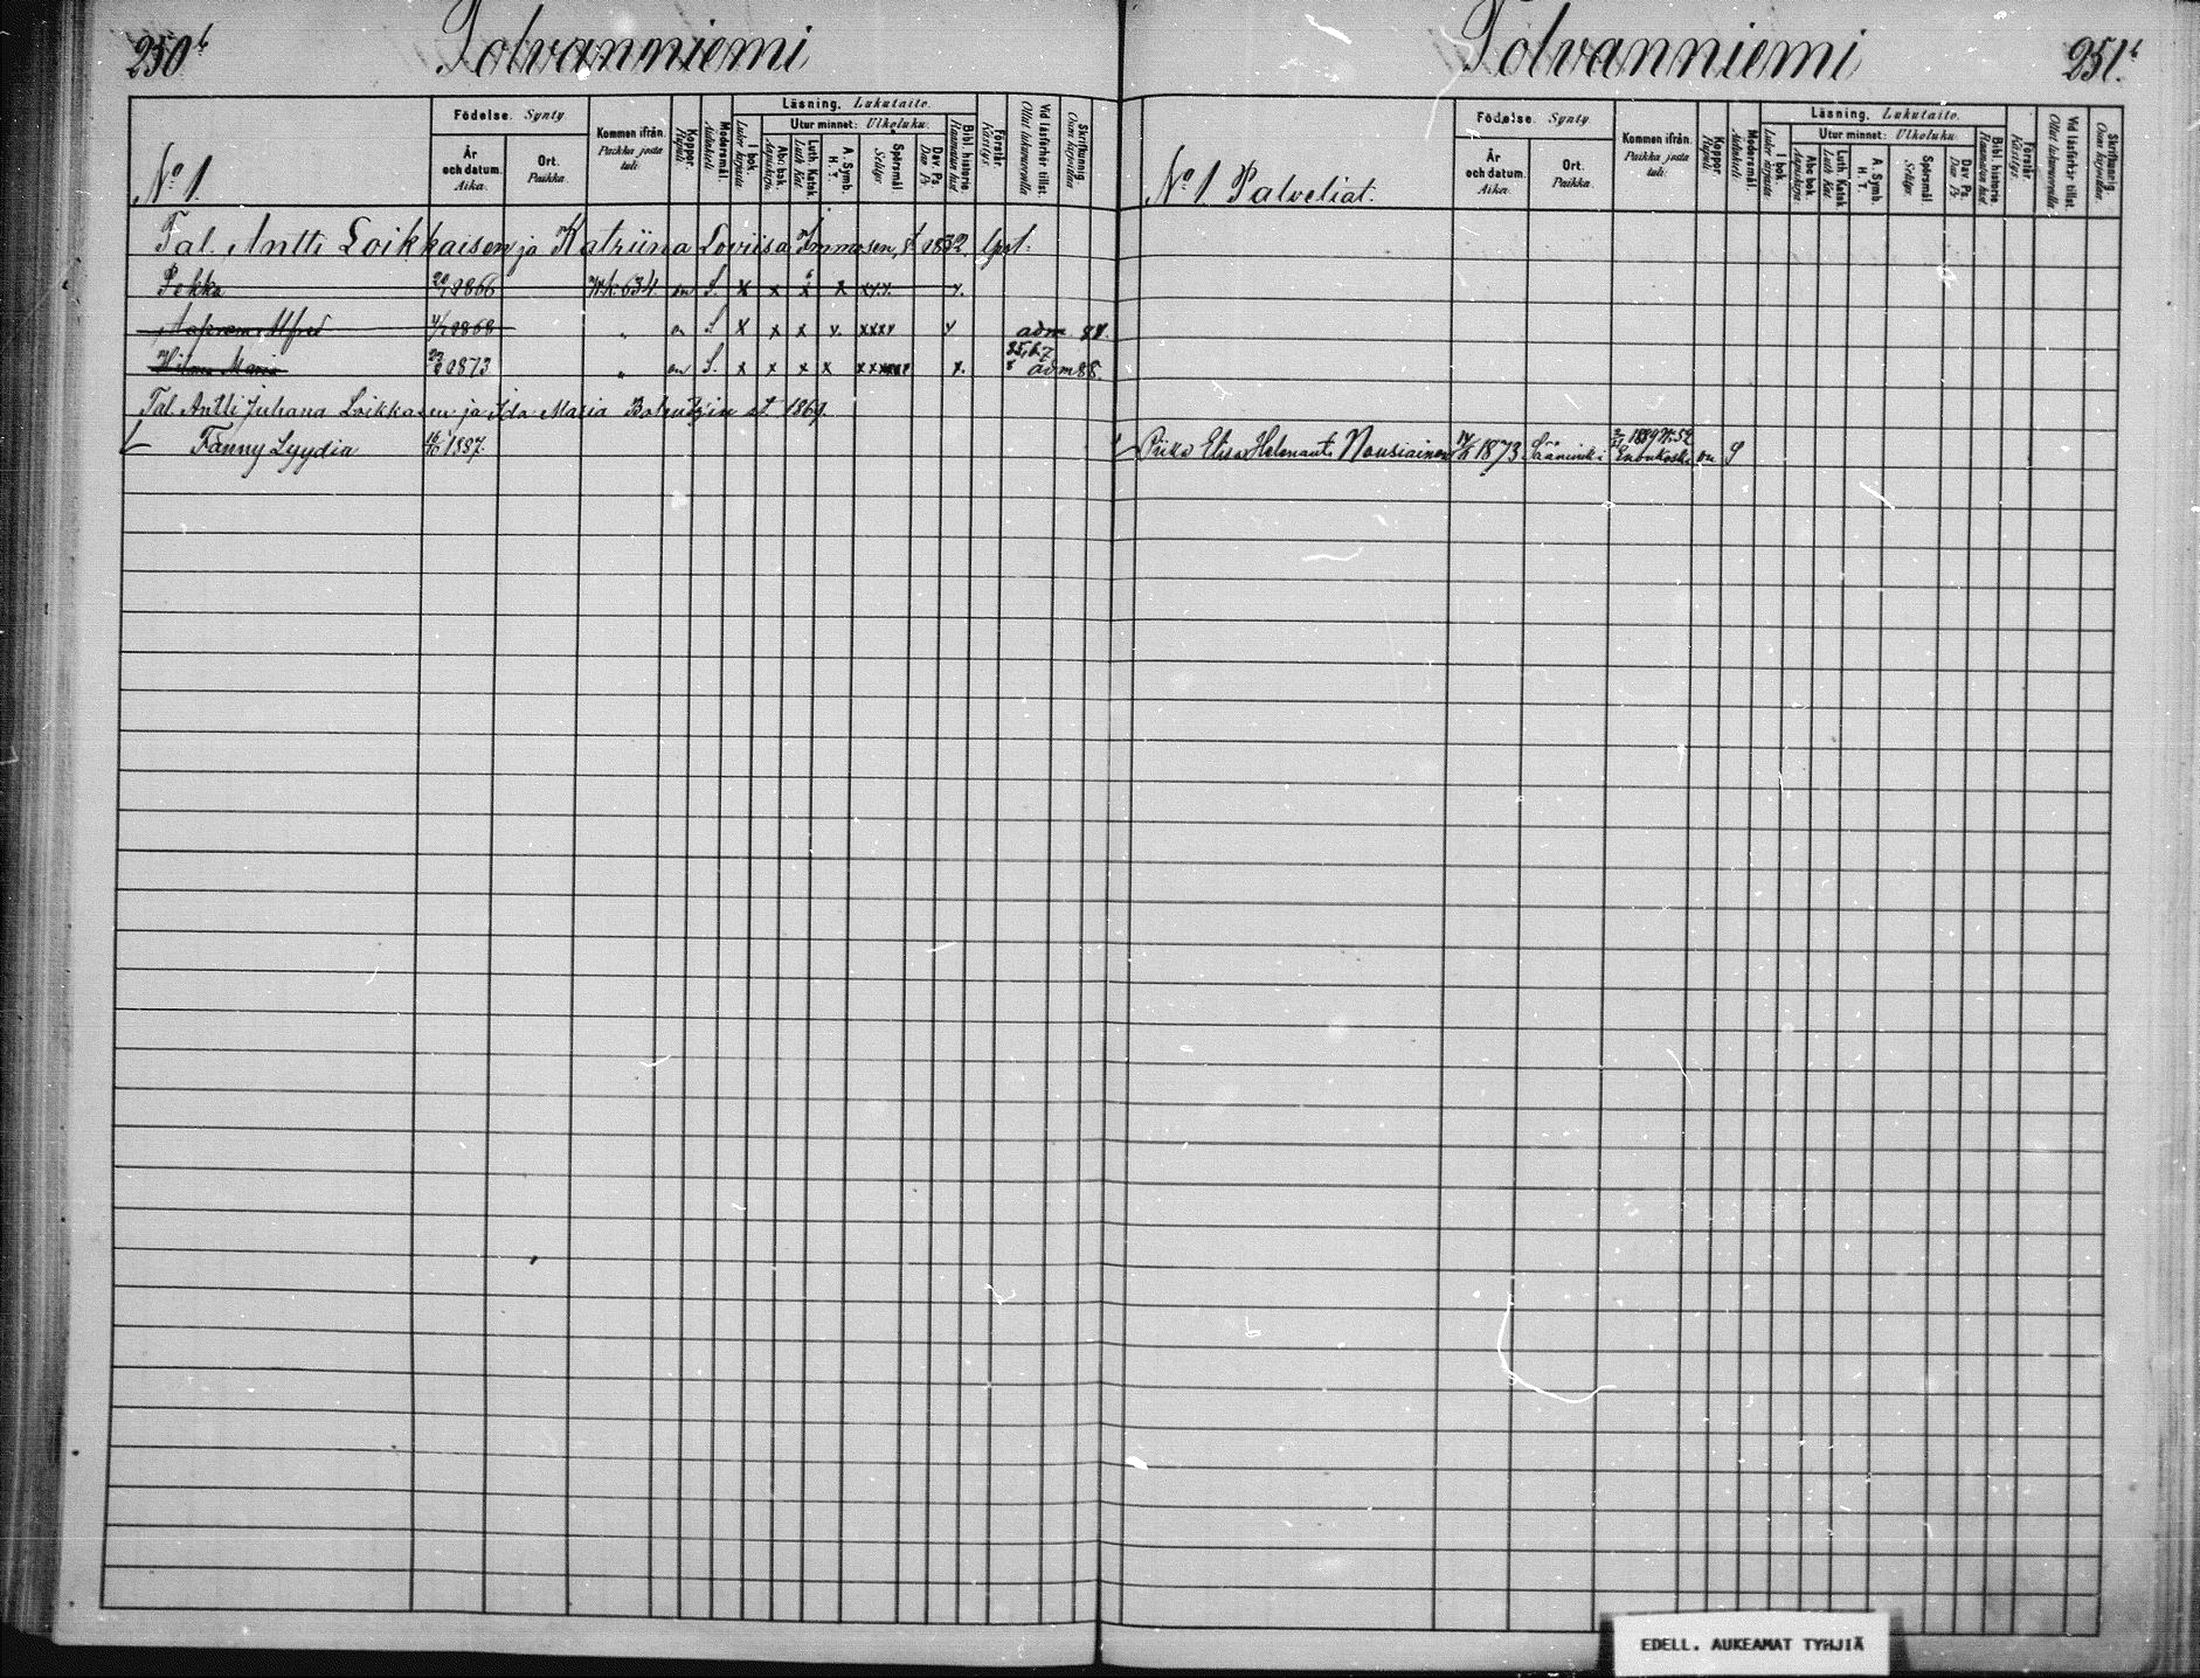 250 Tolvanniemi
Födelse. Synty
Kommen ifrån. Paikka josta tuli.
Koppor. Rupuli
Modersmål. Äidinkieli
Läsning. Lukutaito.
Utur minnet: Ulkoluku.
År och datum. Aika.
Ort. Paikka.
I bok. Lukee kirjasta
Abc bok. Aapiskirja
Luth. Katek. Luth Kat.
A. Symb. H. T.
Spörsmål Selitys
Dav. Ps Dav Ps
Bibl. historie. Raamatun hist.
Förstår. Käsitys.
Vid läsförhör tillst. Ollut lukuvuorolla
Skrifkunnig. Osaa kirjoittaa
No 1.
Tal. Antti Loikkaisen ja Katriina Loviisa Immosen, s. 1832. lpst.
Pekka 1866 634. on S. x x x x x.
Alfred 1868 " on S x x x x. xxxx x adm 88.
Hilma Maria 1873 " on S. x x x x x. adm 88.
Tal. Antti Juhana Loikkasen ja Ida Maria s. 1869.
Fanny Lyydia 1887.
Tolvanniemi 251
Födelse. Synty
Kommen ifrån. Paikka josta tuli.
Koppor Rupuli
Modersmål. Äidinkieli
Läsning. Lukutaito.
Utur minnet: Ulkoluku
År och datum. Aika.
Ort. Paikka.
I bok Lukee kirjasta
Abc bok. Aapiskirja
Luth. Katek. Luth Kat
A. Symb. H. T.
Spörsmål Selitys
Dav. Ps. Dav Ps
Bibl. historie Raamatun hist.
Förstår. Käsitys.
Vid läsförhör tillst. Ollut lukuvuorolla
Skrifkunnig. Osaa kirjoittaa
No 1. Palveliat.
Piika Elisa Nousiainen 1873 Sääminki 1889 N:52 Enonkoski on S
EDELL. AUKEAMAT TYHJIÄ